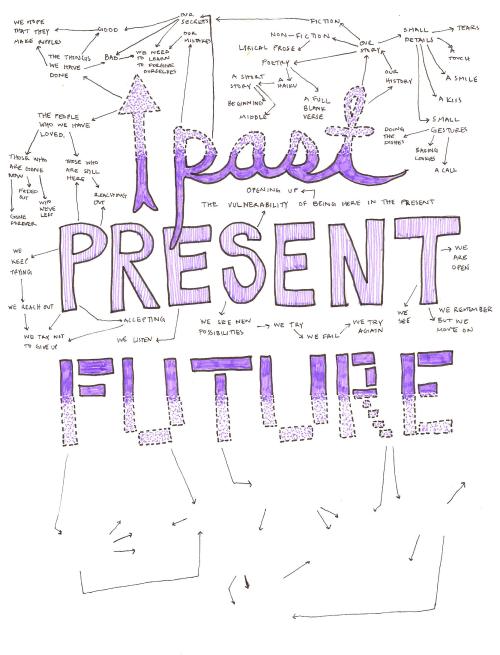 WE HOPE
THAT THEY
MAKE RIPPLES
GOOD
OUR
SECRETS
OUR
MISTAKES
THE THINGS
WE HAVE
DONE
BAD
WE NEED
TO LEARN
TO FORGIVE
OURSELVES
FICTION
NON-FICTION
LYRICAL PROSE
POETRY
A SHORT
STORY
A
HAIKU
BEGINNING
MIDDLE
A FULL
BLANK
VERSE
OUR
STORY
OUR
HISTORY
SMALL
DETAILS
TEARS
A
TOUCH
A SMILE
A KISS
SMALL
GESTURES
DOING
THE
DISHES
A CALL
THE PEOPLE
WHO WE HAVE
LOVED.
THOSE WHO
ARE GONE
NOW
FADED
OUT
GONE
FOREVER
WHO
WE'VE
LEFT
THOSE WHO
ARE STILL
HERE
REACHING
OUT
past
OPENING UP
THE VULNERABILITY OF BEING HERE IN THE PRESENT
PRESENT
WE
KEEP
TRYING
WE REACH OUT
WE TRY NOT
TO GIVE UP
ACCEPTING
WE LISTEN
WE SEE NEW
POSSIBILITIES
WE TRY
WE FAIL
WE TRY
AGAIN
WE
SEE
WE
ARE
OPEN
WE REMEMBER
BUT WE
MOVE ON
FUTURE